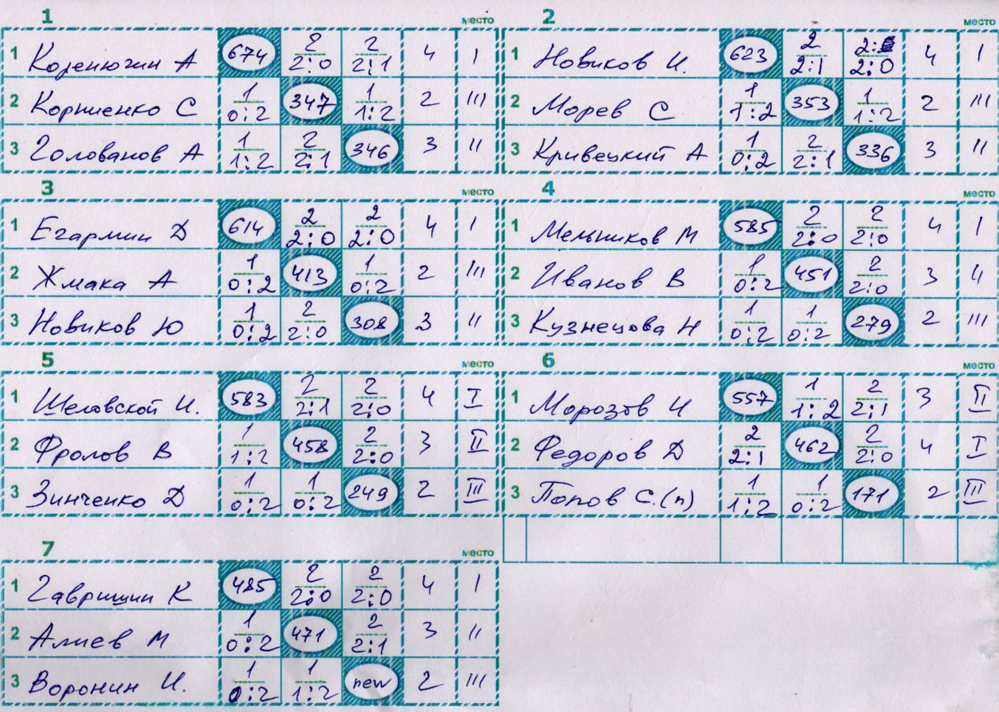 1 место
1 Коренюгин А 674 2 2:0 2 2:1 4 I
2 Корниенко С 1 0:2 347 1 1:2 2 III
3 Голованов А 1 1:2 2 2:1 346 3 II
2 место
1 Новиков И. 623 2 2:1 2:0 4 I
2 Морев С 1 1:2 353 1 1:2 2 III
3 Кривецкий А 1 0:2 2 2:1 336 3 II
3 место
1 Егармин Д 614 2 2:0 2 2:0 4 I
2 Жмака А 1 0:2 413 1 0:2 2 III
3 Новиков Ю 1 0:2 2 2:0 308 3 II
4 место
1 Мельников М 585 2 2:0 2 2:0 4 I
2 Иванов В 1 0:2 451 2 2:0 3 II
3 Кузнецова Н 1 0:2 1 0:2 279 2 III
5 место
1 Шеловской И. 583 2 2:1 2 2:0 4 I
2 Фролов В 1 1:2 458 2 2:0 3 II
3 Зинченко Д 1 0:2 1 0:2 249 2 III
6 место
1 Морозов И 557 1 1:2 2 2:1 3 II
2 Федоров Д 2 2:1 462 2 2:0 4 I
3 Попов С.(п) 1 1:2 1 0:2 171 2 III
7 место
1 Гавришин К 485 2 2:0 2 2:0 4 I
2 Алиев М 1 0:2 471 2 2:1 3 II
3 Воронин И. 1 0:2 1 1:2 new 2 III